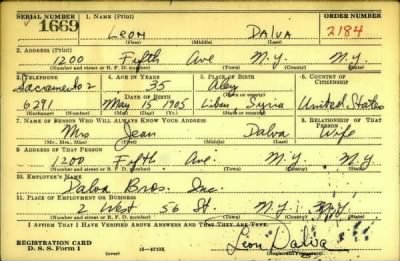 SERIAL NUMBER 1. NAME (Print) ORDER NUMBER
1669 LEON DALVA 2184
(First) (Middle) (Last)
2. ADDRESS (Print)
1200 Fifth Ave N.Y. N.Y.
(Number and street or R. F. D. number) (Town) (County) (State)
3. TELEPHONE 4. AGE IN YEARS 5. PLACE OF BIRTH 6. COUNTRY OF CITIZENSHIP
Sacramento 2 35 Aley
DATE OF BIRTH (Town or county)
6291 May 15 1905 Syria United States
(Exchange) (Number) (Mo.) (Day) (Yr.) (State or country)
7. NAME OF PERSON WHO WILL ALWAYS KNOW YOUR ADDRESS 8. RELATIONSHIP OF THAT PERSON
Mrs Jean Dalva Wife
(Mr., Mrs., Miss) (First) (Middle) (Last)
9. ADDRESS OF THAT PERSON
1200 Fifth Ave. N.Y. N.Y.
(Number and street or R. F. D. number) (Town) (County) (State)
10. EMPLOYER'S NAME
Dalva Bros. Inc.
11. PLACE OF EMPLOYMENT OR BUSINESS
2 West 56 St. N.Y. N.Y.
(Number and street or R. F. D. number) (Town) (County) (State)
I AFFIRM THAT I HAVE VERIFIED ABOVE ANSWERS AND THAT THEY ARE TRUE.
REGISTRATION CARD
D. S. S. Form 1 (over) Leon Dalva
(Registrant's signature)